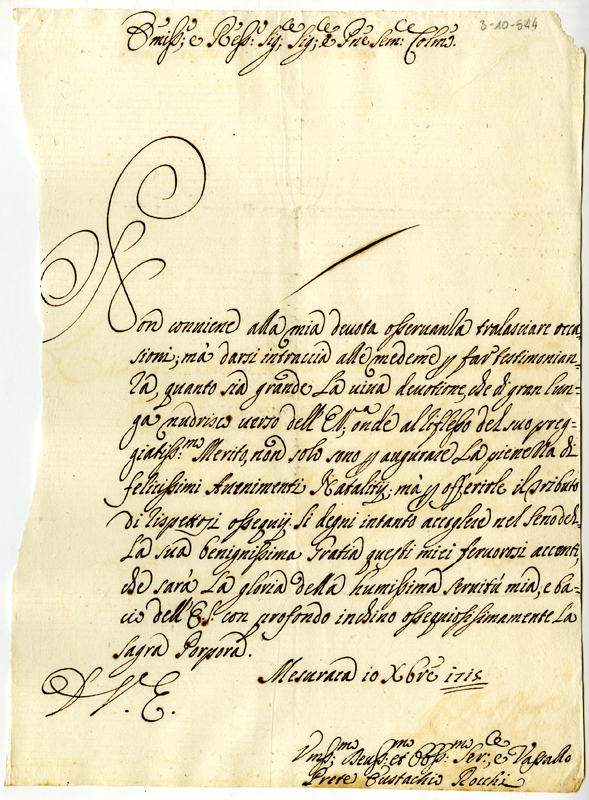 3-10-544
Em̃iss: e Reũss: Sig: Sig:re e Pñe Sem: Colm̃o.
Non conviene alla mia devota osservanza tralasciare occa-
sioni; mà darsi intraccia alle medeme p far testimonian-
za, quanto sia grande la viva devotione, che di gran lun-
ga nudrisco verso dell'E.V.a, onde al riflesso del suo preg-
giatiss:mo Merito, non solo sono p augurare La pienezza di
felicissimi Avenimenti Natalitij; mà p offerirle il tributo
di rispettosi ossequij. Si degni intanto accogliere nel seno del-
La sua benignissima Gratia questi miei fervorosi accenti,
che sarà La gloria della humissima servitù mia, e ba-
cio dell'E.S. con profondo inchino ossequiosissimamente La
sagra Porpora.
Mesuraca 10 Xbre 1715
D V. E.
Vmss:mo Devss:mo et Obss:mo Ser:re, e Vassallo
Prete Eustachio Rocchi